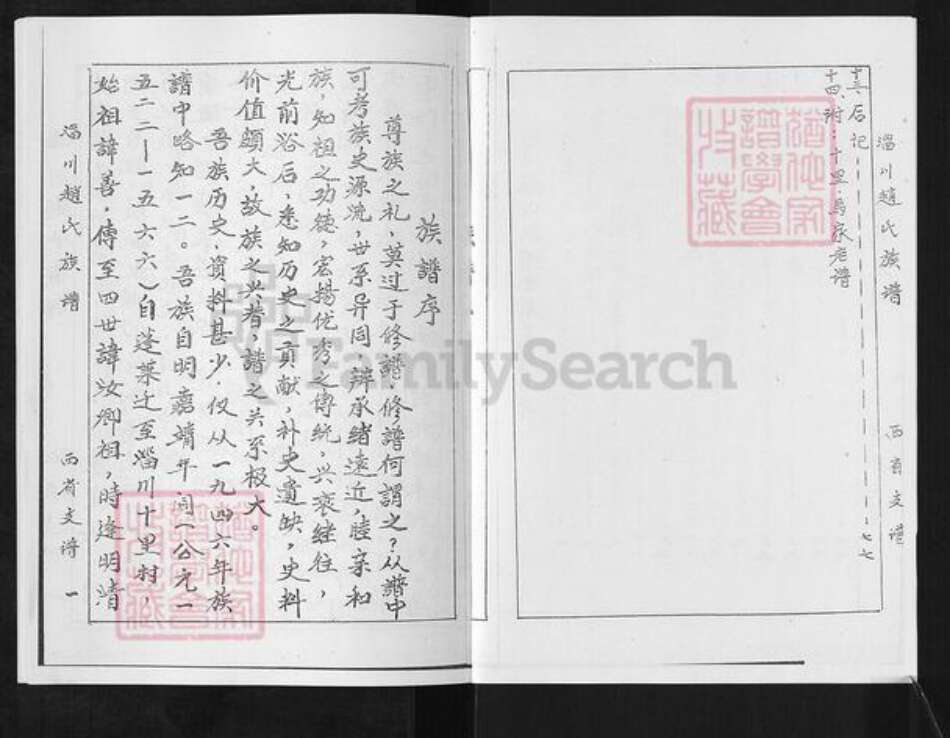 淄川趙氏族譜 西省支谱
十三、后记-----------七七
十四、附：十里馬家老谱
族譜序
尊族之礼，莫过于修譜。修譜何謂之？从譜中
可考族史源流，世系异同，辨承绪遠近，睦亲和
族，知祖之功德，宏揚优秀之傳統，兴衰继往，
光前裕后，悉知历史之貢献，补史遺缺，史料
价值頗大，故族之兴替，譜之关系极大。
吾族历史，資料甚少，仅从一九四六年族
譜中略知一二。吾族自明嘉靖年间（公元一
五二二—一五六六）自蓬萊迁至淄川十里村，
始祖諱善，傳至四世諱汝卿祖，時逢明清
淄川趙氏族譜 西省支谱 一
猶他家譜學會收藏
猶他家譜學會收藏
FamilySearch